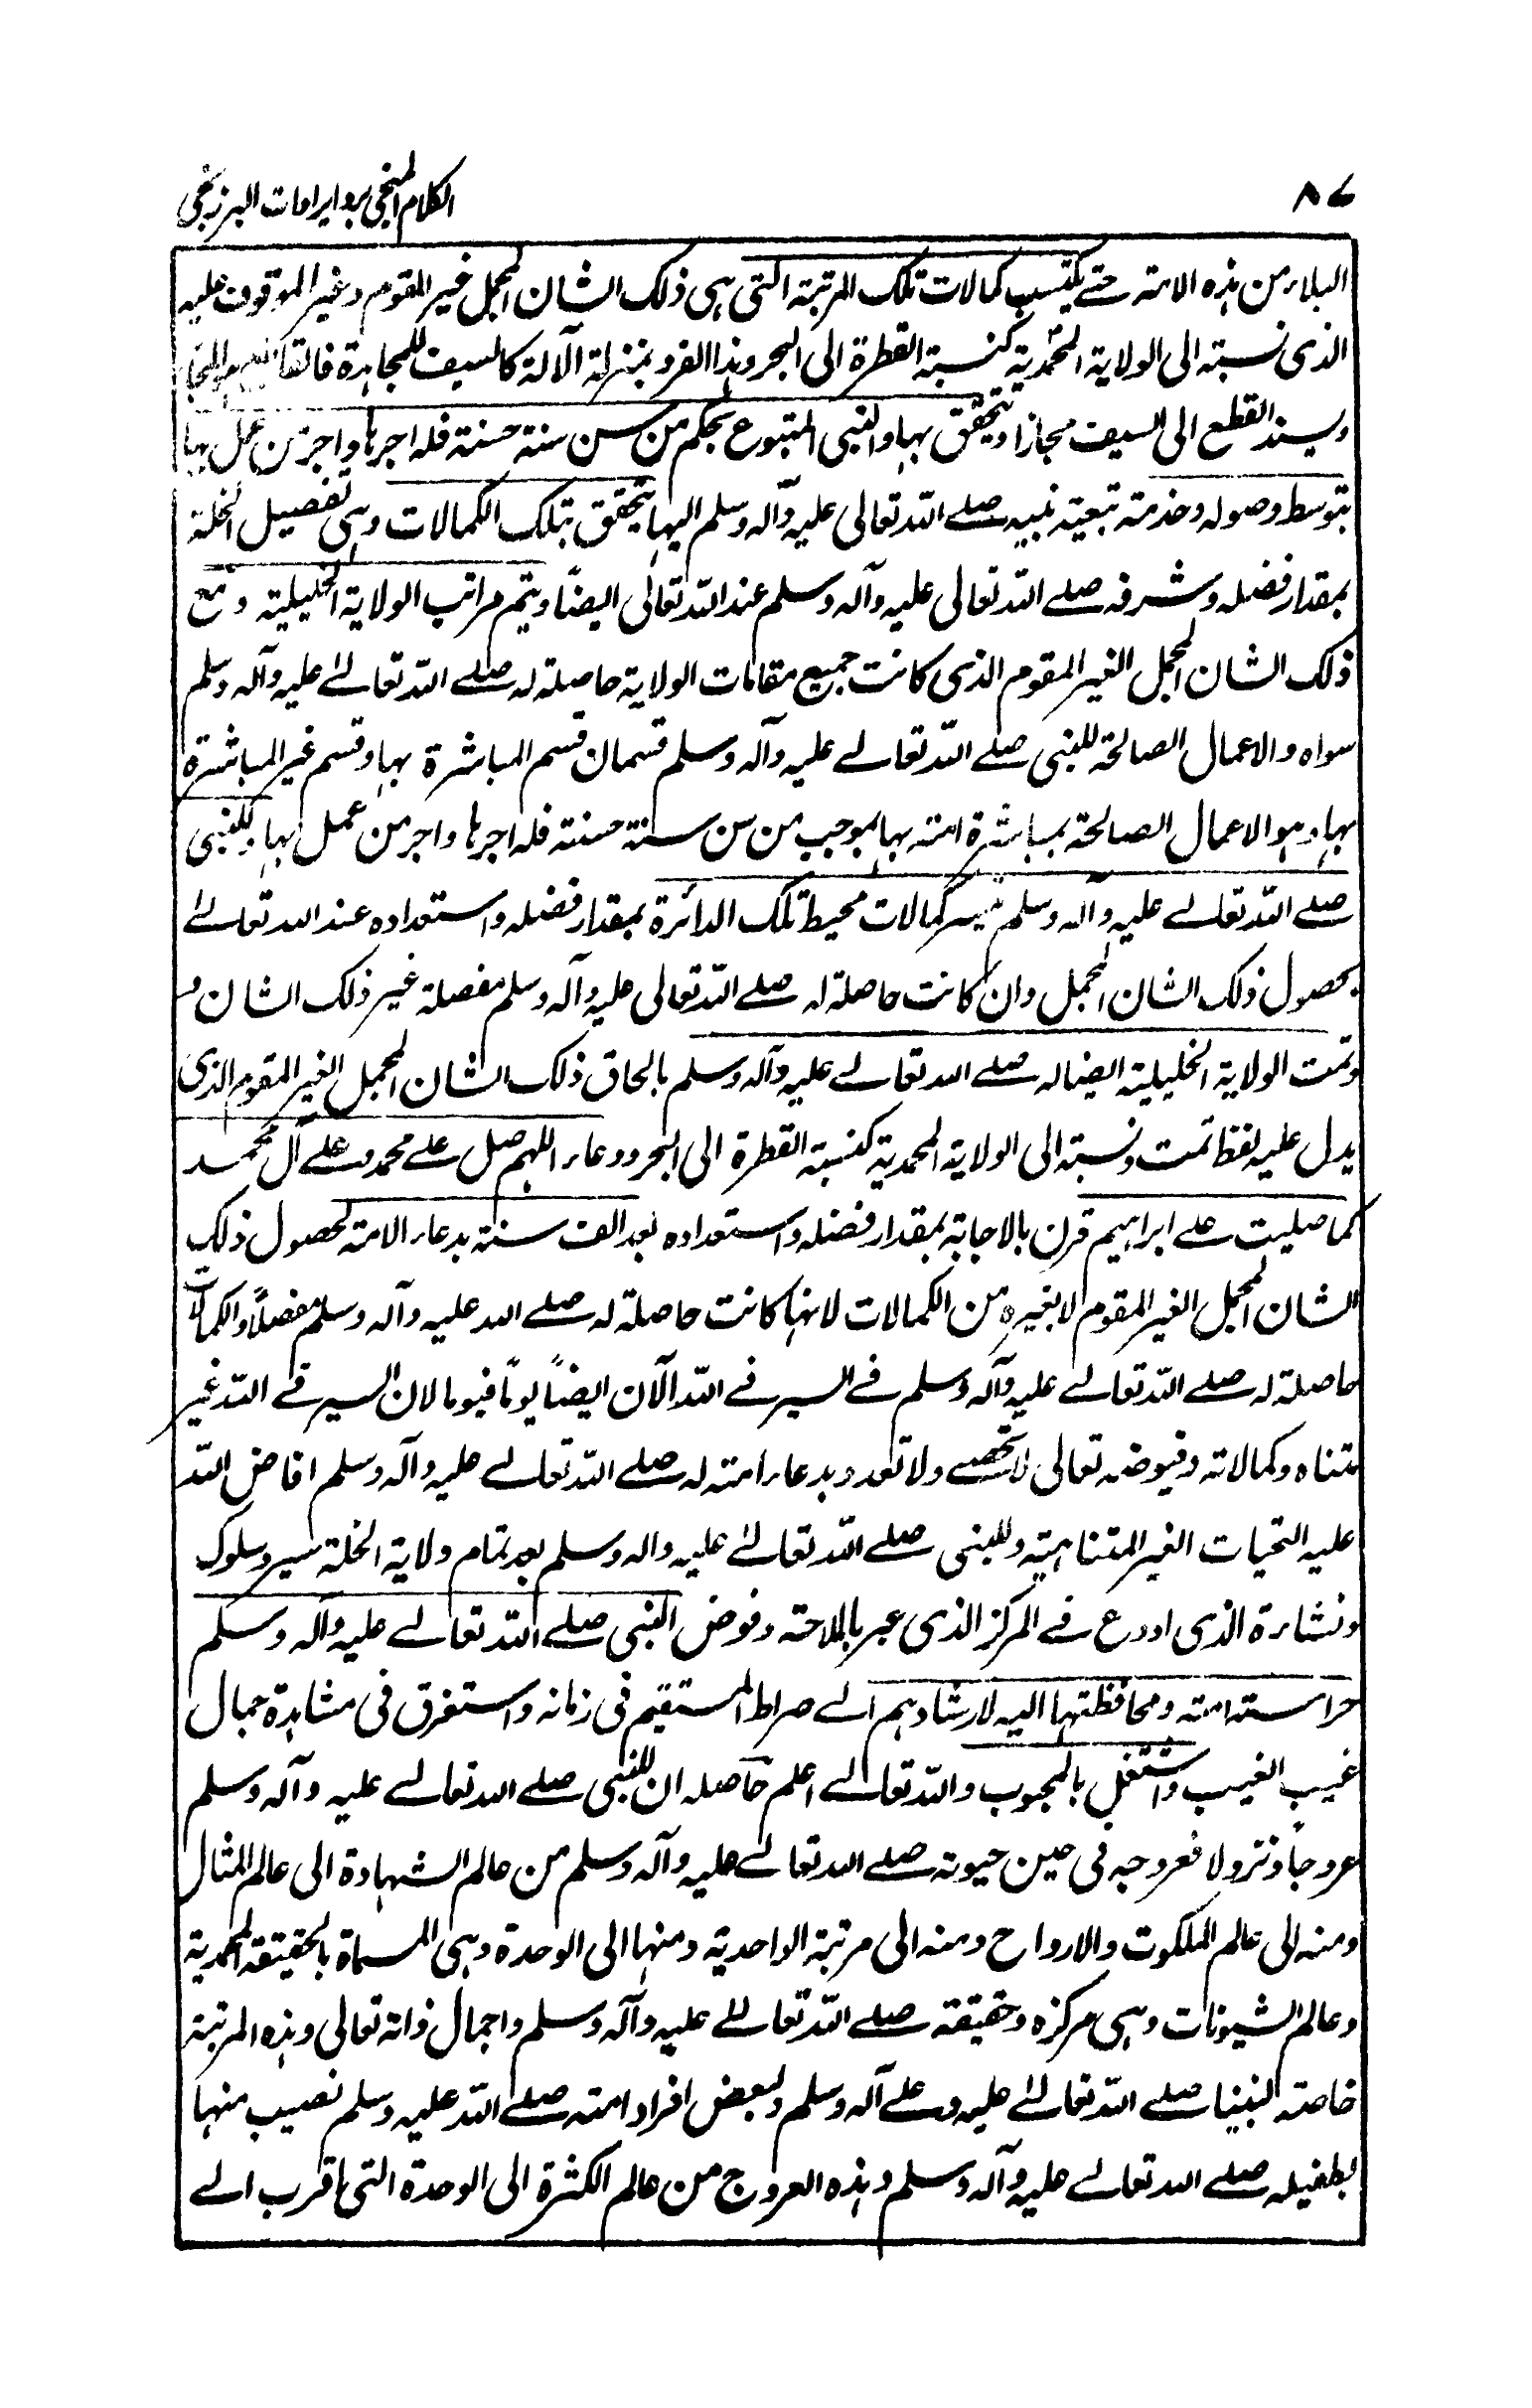 ٨٤ الكلام المنجی برد ایرادات البرزنجی
البلاء من هذه الامة حتے یکتسب کمالات تلک المرتبة التی هی ذلک الشان المجمل غیر المقوم وغیر الموقوف علیه
الذی نسبته الی الولایة المحمدیة کنسبة القطرة الی البحر وهذا الفرد بمنزلة الآلة کالسیف للمجاهدة
ویسند القطع الی السیف مجازا ویتحقق بها والنبی المتبوع بحکم من سن سنة حسنة فله اجرها واجر من عمل بها
بتوسط وصوله وخدمته تبعیة نبیه صلے الله تعالی علیه وآله وسلم الیها یتحقق بتلک الکمالات وهی تفصیل الخلة
بمقدار فضله وشرفه صلے الله تعالی علیه وآله وسلم عند الله تعالی ایضًا ویتم مراتب الولایة الخلیلیة ومع
ذلک الشان المجمل الغیر المقوم الذی کانت جمیع مقامات الولایة حاصلة له صلے الله تعالیٰ علیه وآله وسلم
سواه والاعمال الصالحة للنبی صلے الله تعالے علیه وآله وسلم قسمان قسم المباشرة بها وقسم غیر المباشرة
بها وهو الاعمال الصالحة بمباشرة امته بها بموجب من سن سنة حسنة فله اجرها واجر من عمل بها وللنبی
صلے الله تعالے علیه وآله وسلم تیسر کمالات محیط تلک الدائرة بمقدار فضله واستعداده عند الله تعالیٰ
بحصول ذلک الشان المجمل وان کانت حاصلة له صلے الله تعالی علیه وآله وسلم مفصلة غیر ذلک الشان
وتمت الولایة الخلیلیة ایضا له صلے الله تعالے علیه وآله وسلم بالحاق ذلک الشان المجمل الغیر المقوم الذی
یدل علیه لفظ تمت ونسبته الی الولایة المحمدیة کنسبة القطرة الی البحر ودعاء اللهم صل علے محمد وعلے آل محمد
کما صلیت علے ابراهیم قرن بالاجابة بمقدار فضله واستعداده بعد الف سنة بدعاء الامة لحصول ذلک
الشان المجمل الغیر المقوم لا بغیره من الکمالات لانها کانت حاصلة له صلے الله علیه وآله وسلم مفصلاً والکمالات
حاصلة له صلے الله تعالے علیه وآله وسلم فے السیر فے الله الآن ایضاً یوماً فیوما لان السیر فے الله غیر
متناه وکمالاته وفیوضه تعالی لا تحصے ولا تعد وبدعاء امته له صلے الله تعالے علیه وآله وسلم افاض الله
علیه التحیات الغیر المتناهیة وللنبی صلے الله تعالیٰ علیه واله وسلم بعد تمام ولایة الخلة سیر وسلوک
ونشاءة الذی اودع فے المرکز الذی عبر بالملاحة وفوض النبی صلے الله تعالے علیه وآله وسلم
حراسة امته ومحافظتها الیه لارشادهم الے صراط المستقیم فی زمانه واستغرق فی مشاهدة جمال
غیب الغیب واشتغل بالمحبوب والله تعالے اعلم حاصله ان للنبی صلے الله تعالے علیه وآله وسلم
عروجاً ونزولا فعروجه فی حین حیوته صلے الله تعالے علیه وآله وسلم من عالم الشهادة الی عالم المثال
ومنه الی عالم الملکوت والارواح ومنه الی مرتبة الواحدیة ومنها الی الوحدة وهی المسماة بالحقیقة المحمدیة
وعالم الشیونات وهی مرکزه وحقیقته صلے الله تعالیٰ علیه وآله وسلم واجمال ذاته تعالی وهذه المرتبة
خاصة لنبینا صلے الله تعالیٰ علیه وعلے آله وسلم ولبعض افراد امته صلے الله علیه وسلم نصیب منها
بطفیله صلے الله تعالے علیه وآله وسلم وهذه العروج من عالم الکثرة الی الوحدة التی اقرب الے